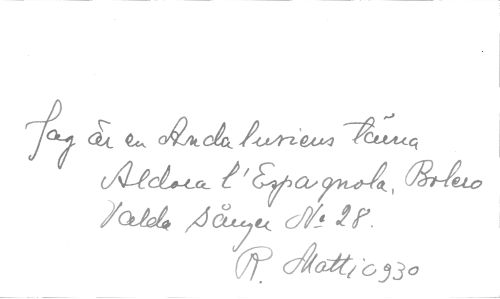 Jag är en Andalusiens tärna
Aldora l'Espagnola, Bolero
Valda Sånger No 28.
R. Matti 0930